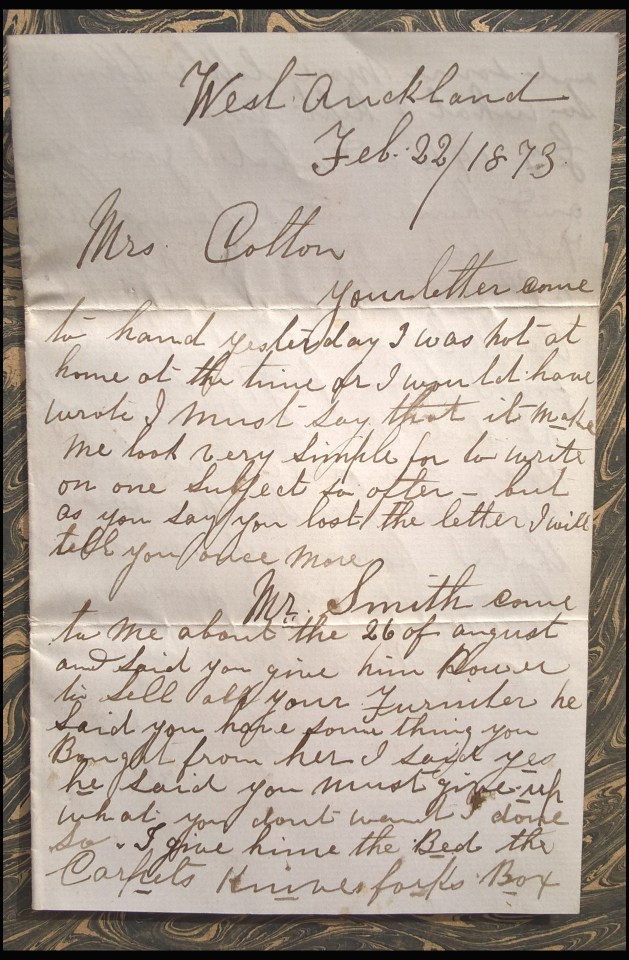 West Auckland
Feb. 22/1873.
Mrs. Cotton
your letter come
to hand yesterday I was not at
home at the time or I would have
wrote I must say that it make
me look very simple for to write
on one subject so often - but
as you say you lost the letter I will
tell you once more
Mr. Smith come
to me about the 26 of august
and said you give him Power
to sell all your Furniter he
said you have some thing you
Bought from her I said yes
he said you must give up
what you dont want I done
so. I give hime the Bed the
Carpets Knives forks Box